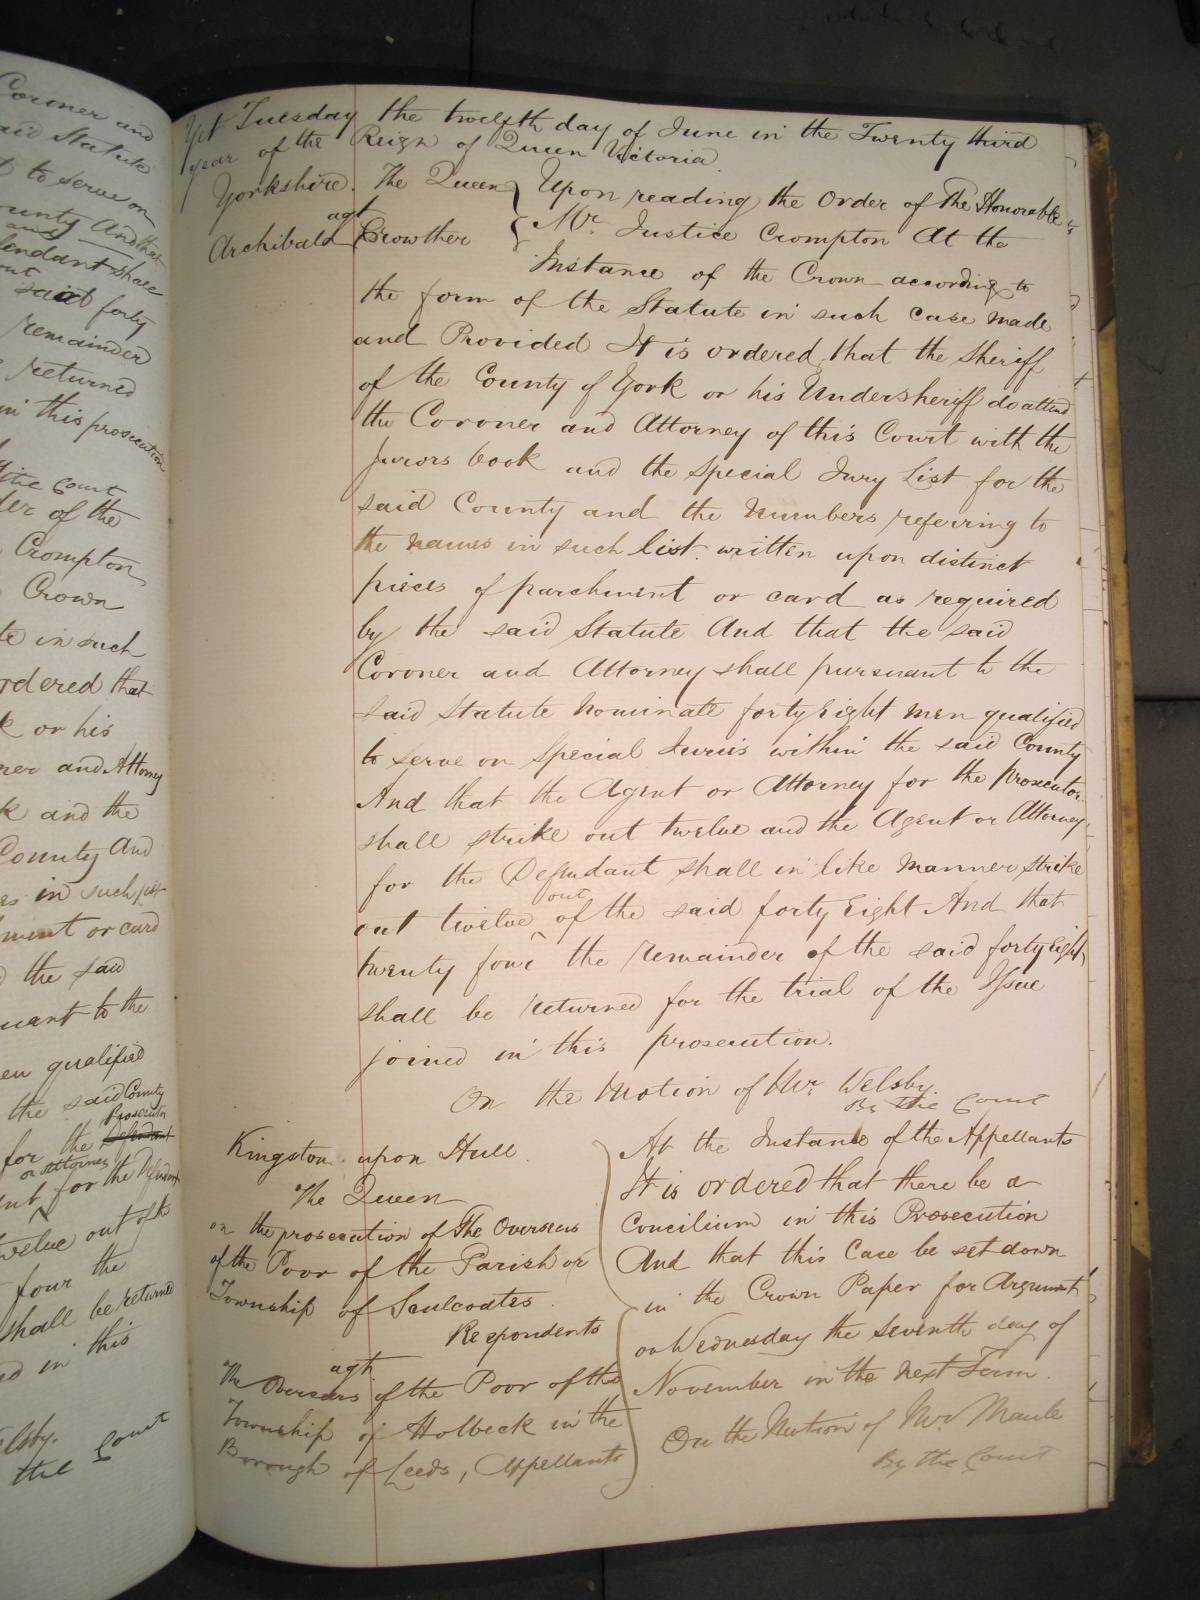 Coroner and
said Statute
to serve on
County And that
and
defendant shall
out
said forty
remainder
returned
in this prosecution
the Court
order of the
Crompton
Crown
in such
ordered that
or his
and Attorney
and the
County And
in such list
or card
the said
pursuant to the
qualified
the said County
Prosecutor
for the Defendant
or Attorney
for the Defendant
twelve out of the
four the
shall be returned
in this
Welsby.
the Court
Yet Tuesday the twelfth day of June in the Twenty third
year of the Reign of Queen Victoria
Yorkshire. The Queen } Upon reading the Order of The Honorable
agt
Archibald Crowther { Mr. Justice Crompton At the
Instance of the Crown according to
the form of the Statute in such case made
and Provided It is ordered that the Sheriff
of the County of York or his Undersheriff do attend
the Coroner and Attorney of this Court with the
Jurors book and the Special Jury List for the
said County and the Numbers referring to
the names in such list written upon distinct
pieces of parchment or card as required
by the said Statute And that the said
Coroner and Attorney shall pursuant to the
said Statute nominate forty Eight men qualified
to serve on Special Juries within the said County
And that the Agent or Attorney for the Prosecutor
shall strike out twelve and the Agent or Attorney
for the Defendant shall in like Manner strike
out
out twelve of the said forty Eight And that
twenty four the remainder of the said forty Eight
shall be returned for the trial of the Issue
joined in this prosecution.
On the Motion of Mr. Welsby.
By the Court
Kingston upon Hull
The Queen
on the prosecution of The Overseers
of the Poor of the Parish or
Township of Sculcoates.
Respondents
agt
The Overseers of the Poor of the
Township of Holbeck in the
Borough of Leeds, Appellants
At the Instance of the Appellants
It is ordered that there be a
Concilium in this Prosecution
And that this Case be set down
in the Crown Paper for Argument
on Wednesday the seventh day of
November in the next Term.
On the Motion of Mr. Maule
By the Court